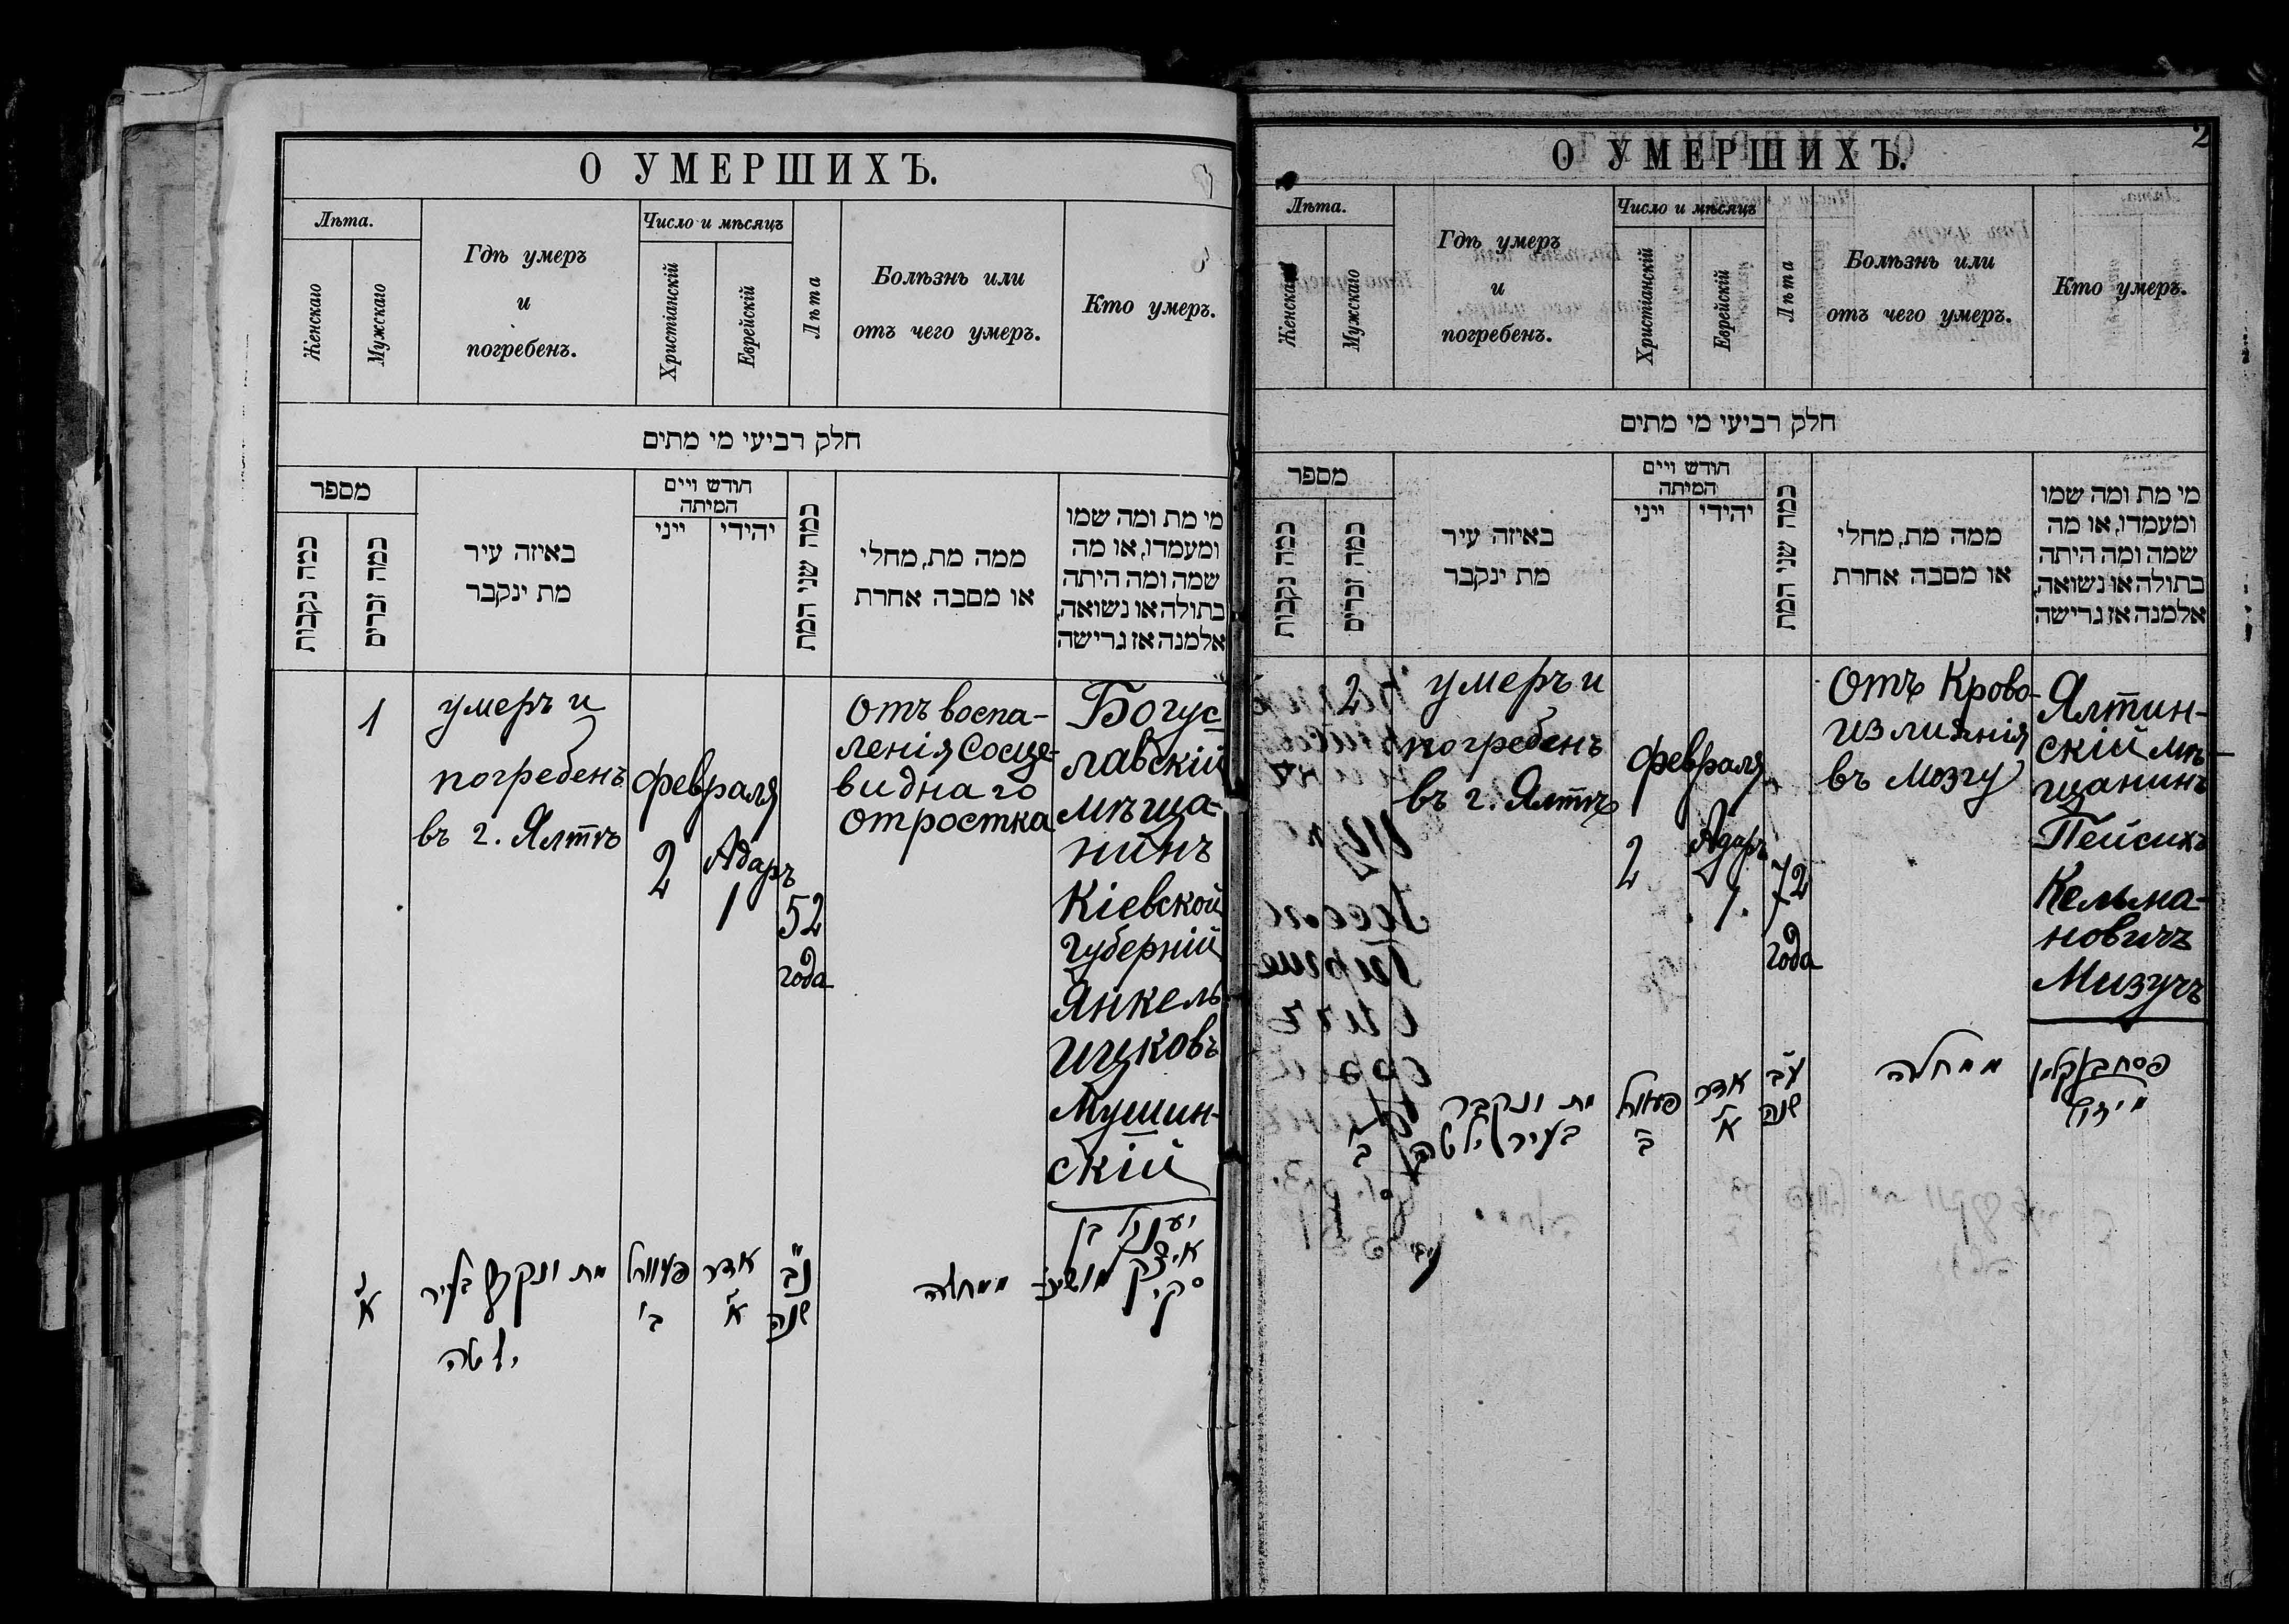 О УМЕРШИХЪ.
Лѣта.
Женскаго
Мужскаго
Гдѣ умеръ
и
погребенъ.
Число и мѣсяцъ
Христіанскій
Еврейскій
Лѣта
Болѣзнь или
отъ чего умеръ.
Кто умеръ.
חלק רביעי מי מתים
מספר
כמה נקבות
כמה זכרים
באיזה עיר
מת ינקבר
חודש ויים
המיתה
ייני
יהידי
כמה שני המת
ממה מת, מחלי
או מסבה אחרת
מי מת ומה שמו
ומעמדו, או מה
שמה ומה היתה
בתולה או נשואה,
אלמנה אז גרישה
1
умеръ и
погребенъ
въ г. Ялтѣ
февраля
2
Адаръ
1
52
года
отъ воспа-
ленія Сосце-
виднаго
отростка
Богус-
лавскій
мѣща-
нинъ
Кіевской
губерніи
Янкель
Ицковъ
Мушин-
скій
א
מת ונקבר בעיר
ילטה
ב
אדר
א
נב
שנה
ממחלה
יענקל בן
איצק
סקי
О УМЕРШИХЪ.
2
Лѣта.
Женскаго
Мужскаго
Гдѣ умеръ
и
погребенъ.
Число и мѣсяцъ
Христіанскій
Еврейскій
Лѣта
Болѣзнь или
отъ чего умеръ.
Кто умеръ.
חלק רביעי מי מתים
מספר
כמה נקבות
כמה זכרים
באיזה עיר
מת ינקבר
חודש ויים
המיתה
ייני
יהידי
כמה שני המת
ממה מת, מחלי
או מסבה אחרת
מי מת ומה שמו
ומעמדו, או מה
שמה ומה היתה
בתולה או נשואה,
אלמנה אז גרישה
2
умеръ и
погребенъ
въ г. Ялтѣ
февраля
2
Адаръ
1.
72
года
отъ Крово-
излиянія
въ мозгу
Ялтин-
скій мѣ-
щанинъ
Пейсихъ
Кельма-
новичъ
Мизучъ
ב
מת ונקבר
בעיר ילטה
ב
אדר
א
עב
שנה
ממחלה